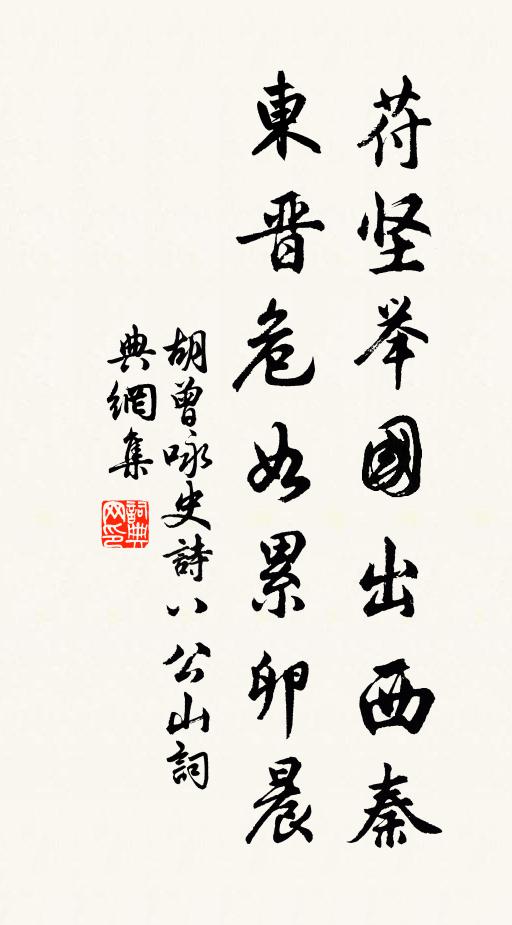 苻坚举國出西秦
東晋危如累卵晨
胡曾咏史詩八公山詞
典網集
詞典网印